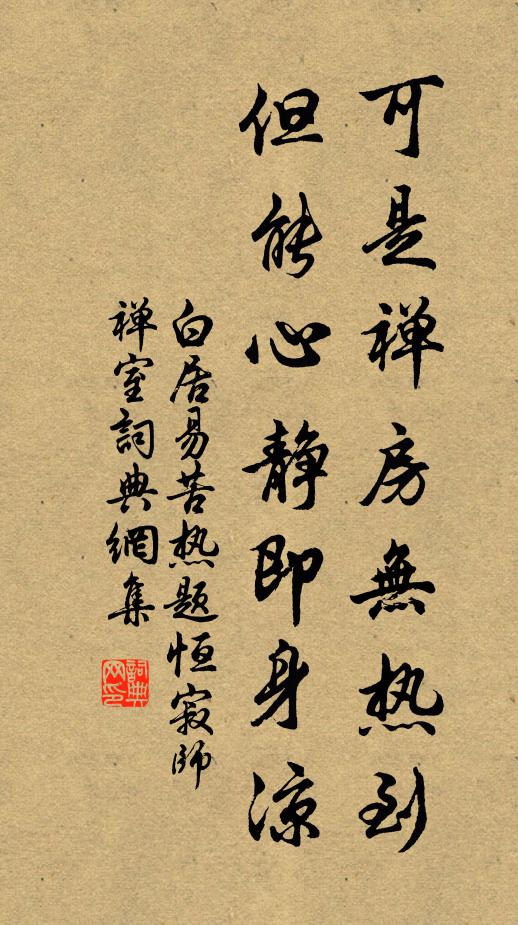 可是禅房無热到
但能心静即身凉
白居易苦热题恒寂师
禅室詞典網集
詞典网印